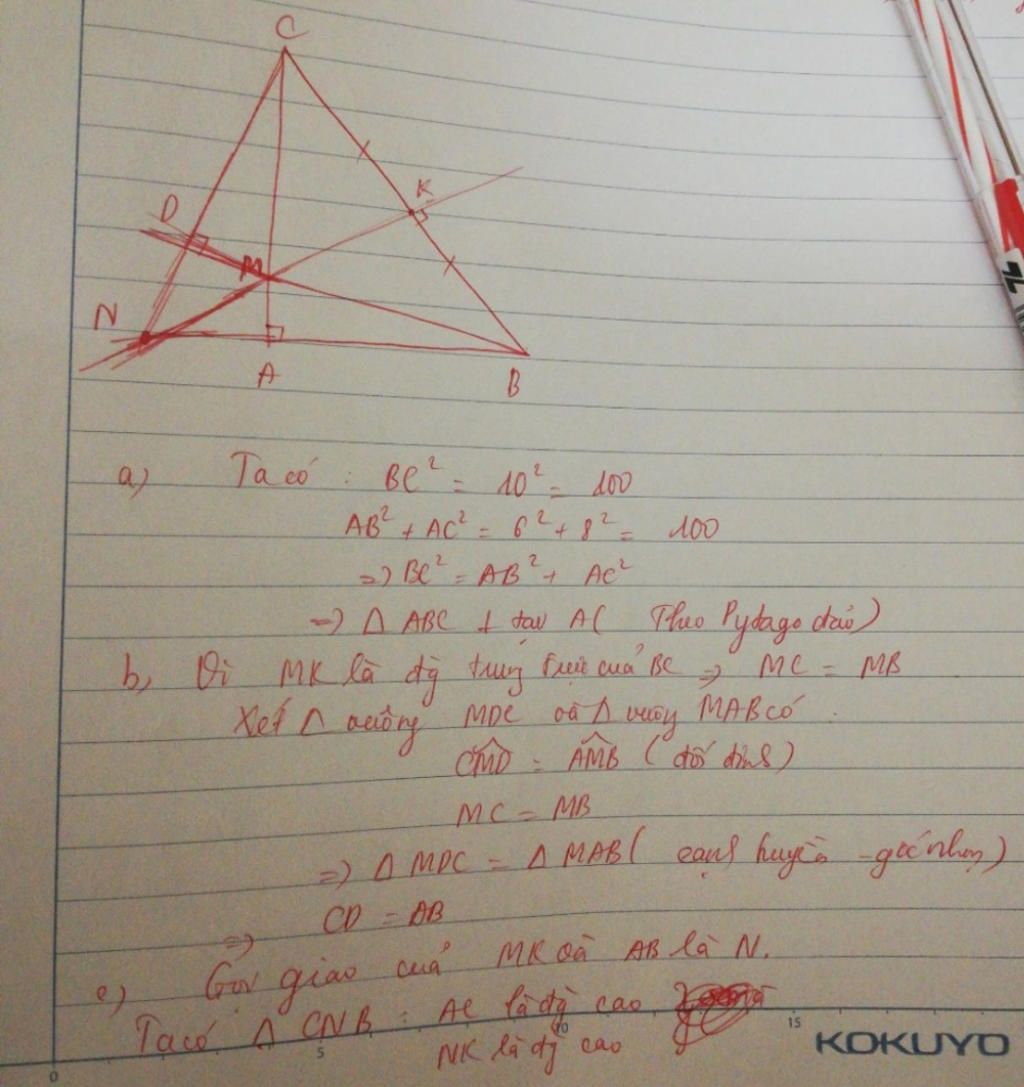 C
K
D
M
N
A
B
a) Ta có : BC² = 10² = 100
AB² + AC² = 6² + 8² = 100
=> BC² = AB² + AC²
=> Δ ABC ⊥ tại A ( Theo Pytago đảo)
b, Vì MK là đg trung trực của BC => MC = MB
Xét Δ vuông MDC và Δ vuông MAB có :
CMD = AMB ( đối đỉnh )
MC = MB
=> Δ MDC = Δ MAB ( cạnh huyền - góc nhọn )
=> CD = AB
c) Gọi giao của MK và AB là N.
Ta có Δ CNB : AC là đg cao
NK là đg cao
0 5 10 15
KOKUYO